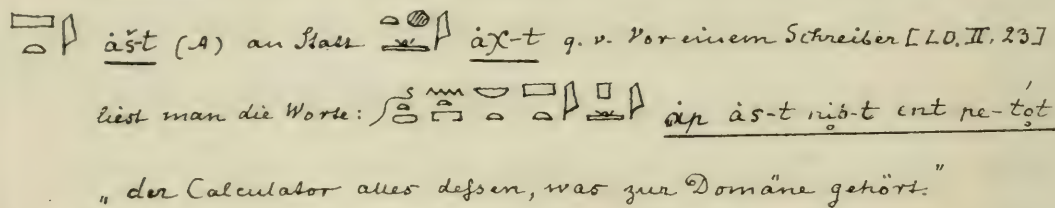 ȧš-t (A) an Statt ȧχ-t q. v. Vor einem Schreiber [LD. II, 23]
liest man die Worte: ȧp ȧs-t nib-t ent pe-t́ot
„ der Calculator alles dessen, was zur Domäne gehört.“